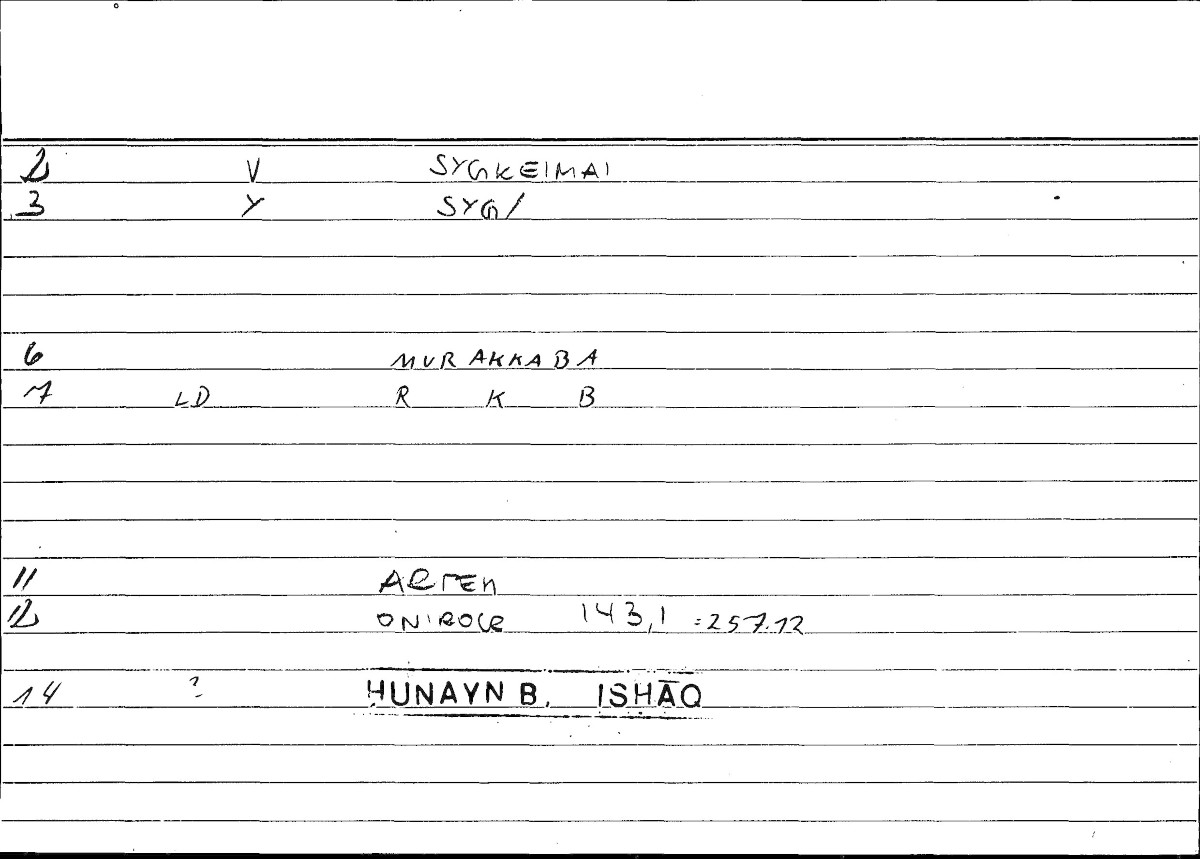 2 V SYGKEIMAI
3 Y SYG/
6 MURAKKABA
7 LD R K B
11 ARTEM
12 ONIROCR 143,1 =257.12
14 ? ḤUNAYN B. ISḤĀQ